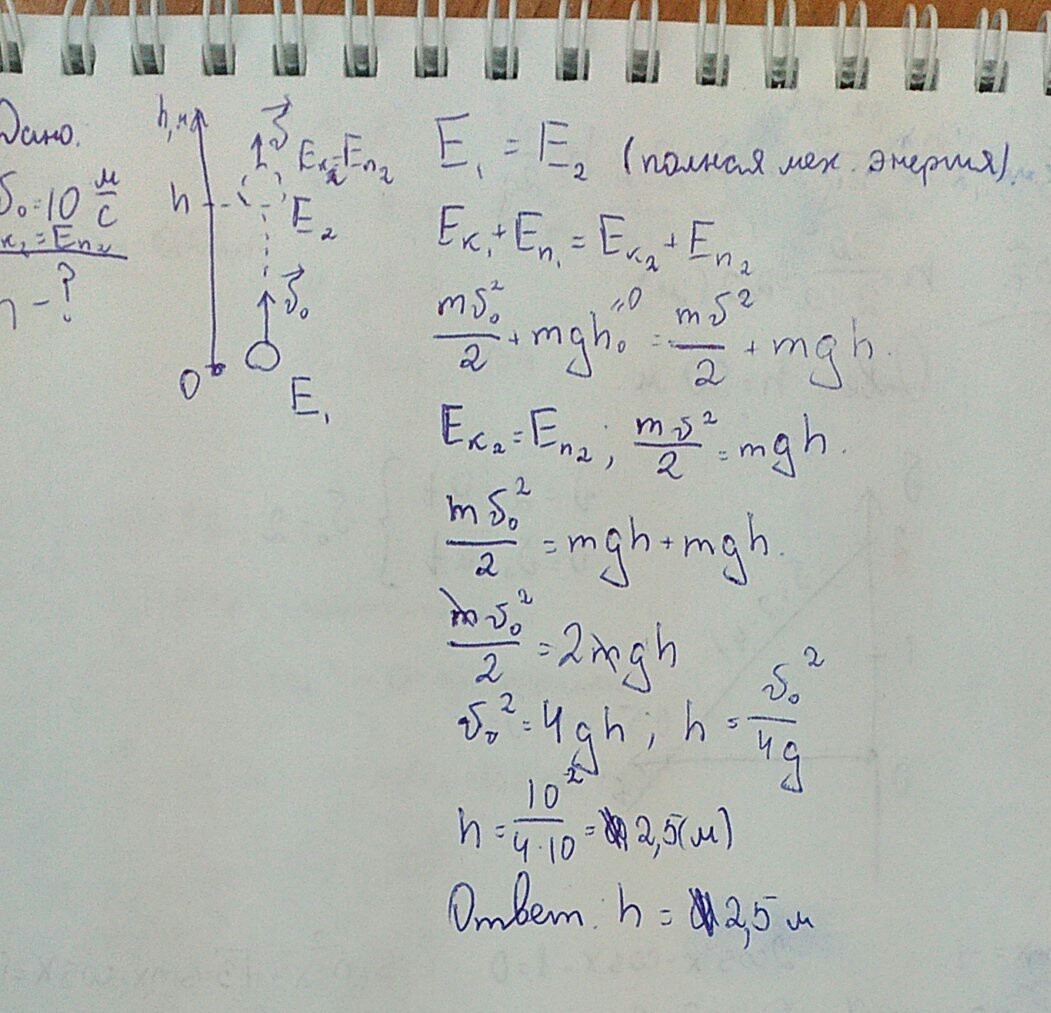 Дано:
υ₀=10 м/с
к₁=Eп₂
h-?
h, м
υ⃗
Eк₂=Eп₂
h
E₂
υ⃗₀
0
E₁
E₁ = E₂ (полная мех. энергия).
Eк₁+Eп₁=Eк₂+Eп₂
mυ₀²/2+mgh₀⁼⁰=mυ²/2+mgh.
Eк₂=Eп₂; mυ²/2=mgh.
mυ₀²/2=mgh+mgh.
mυ₀²/2=2mgh
υ₀²=4gh; h=υ₀²/4g
h=10²/4·10=2,5(м)
Ответ: h=2,5 м